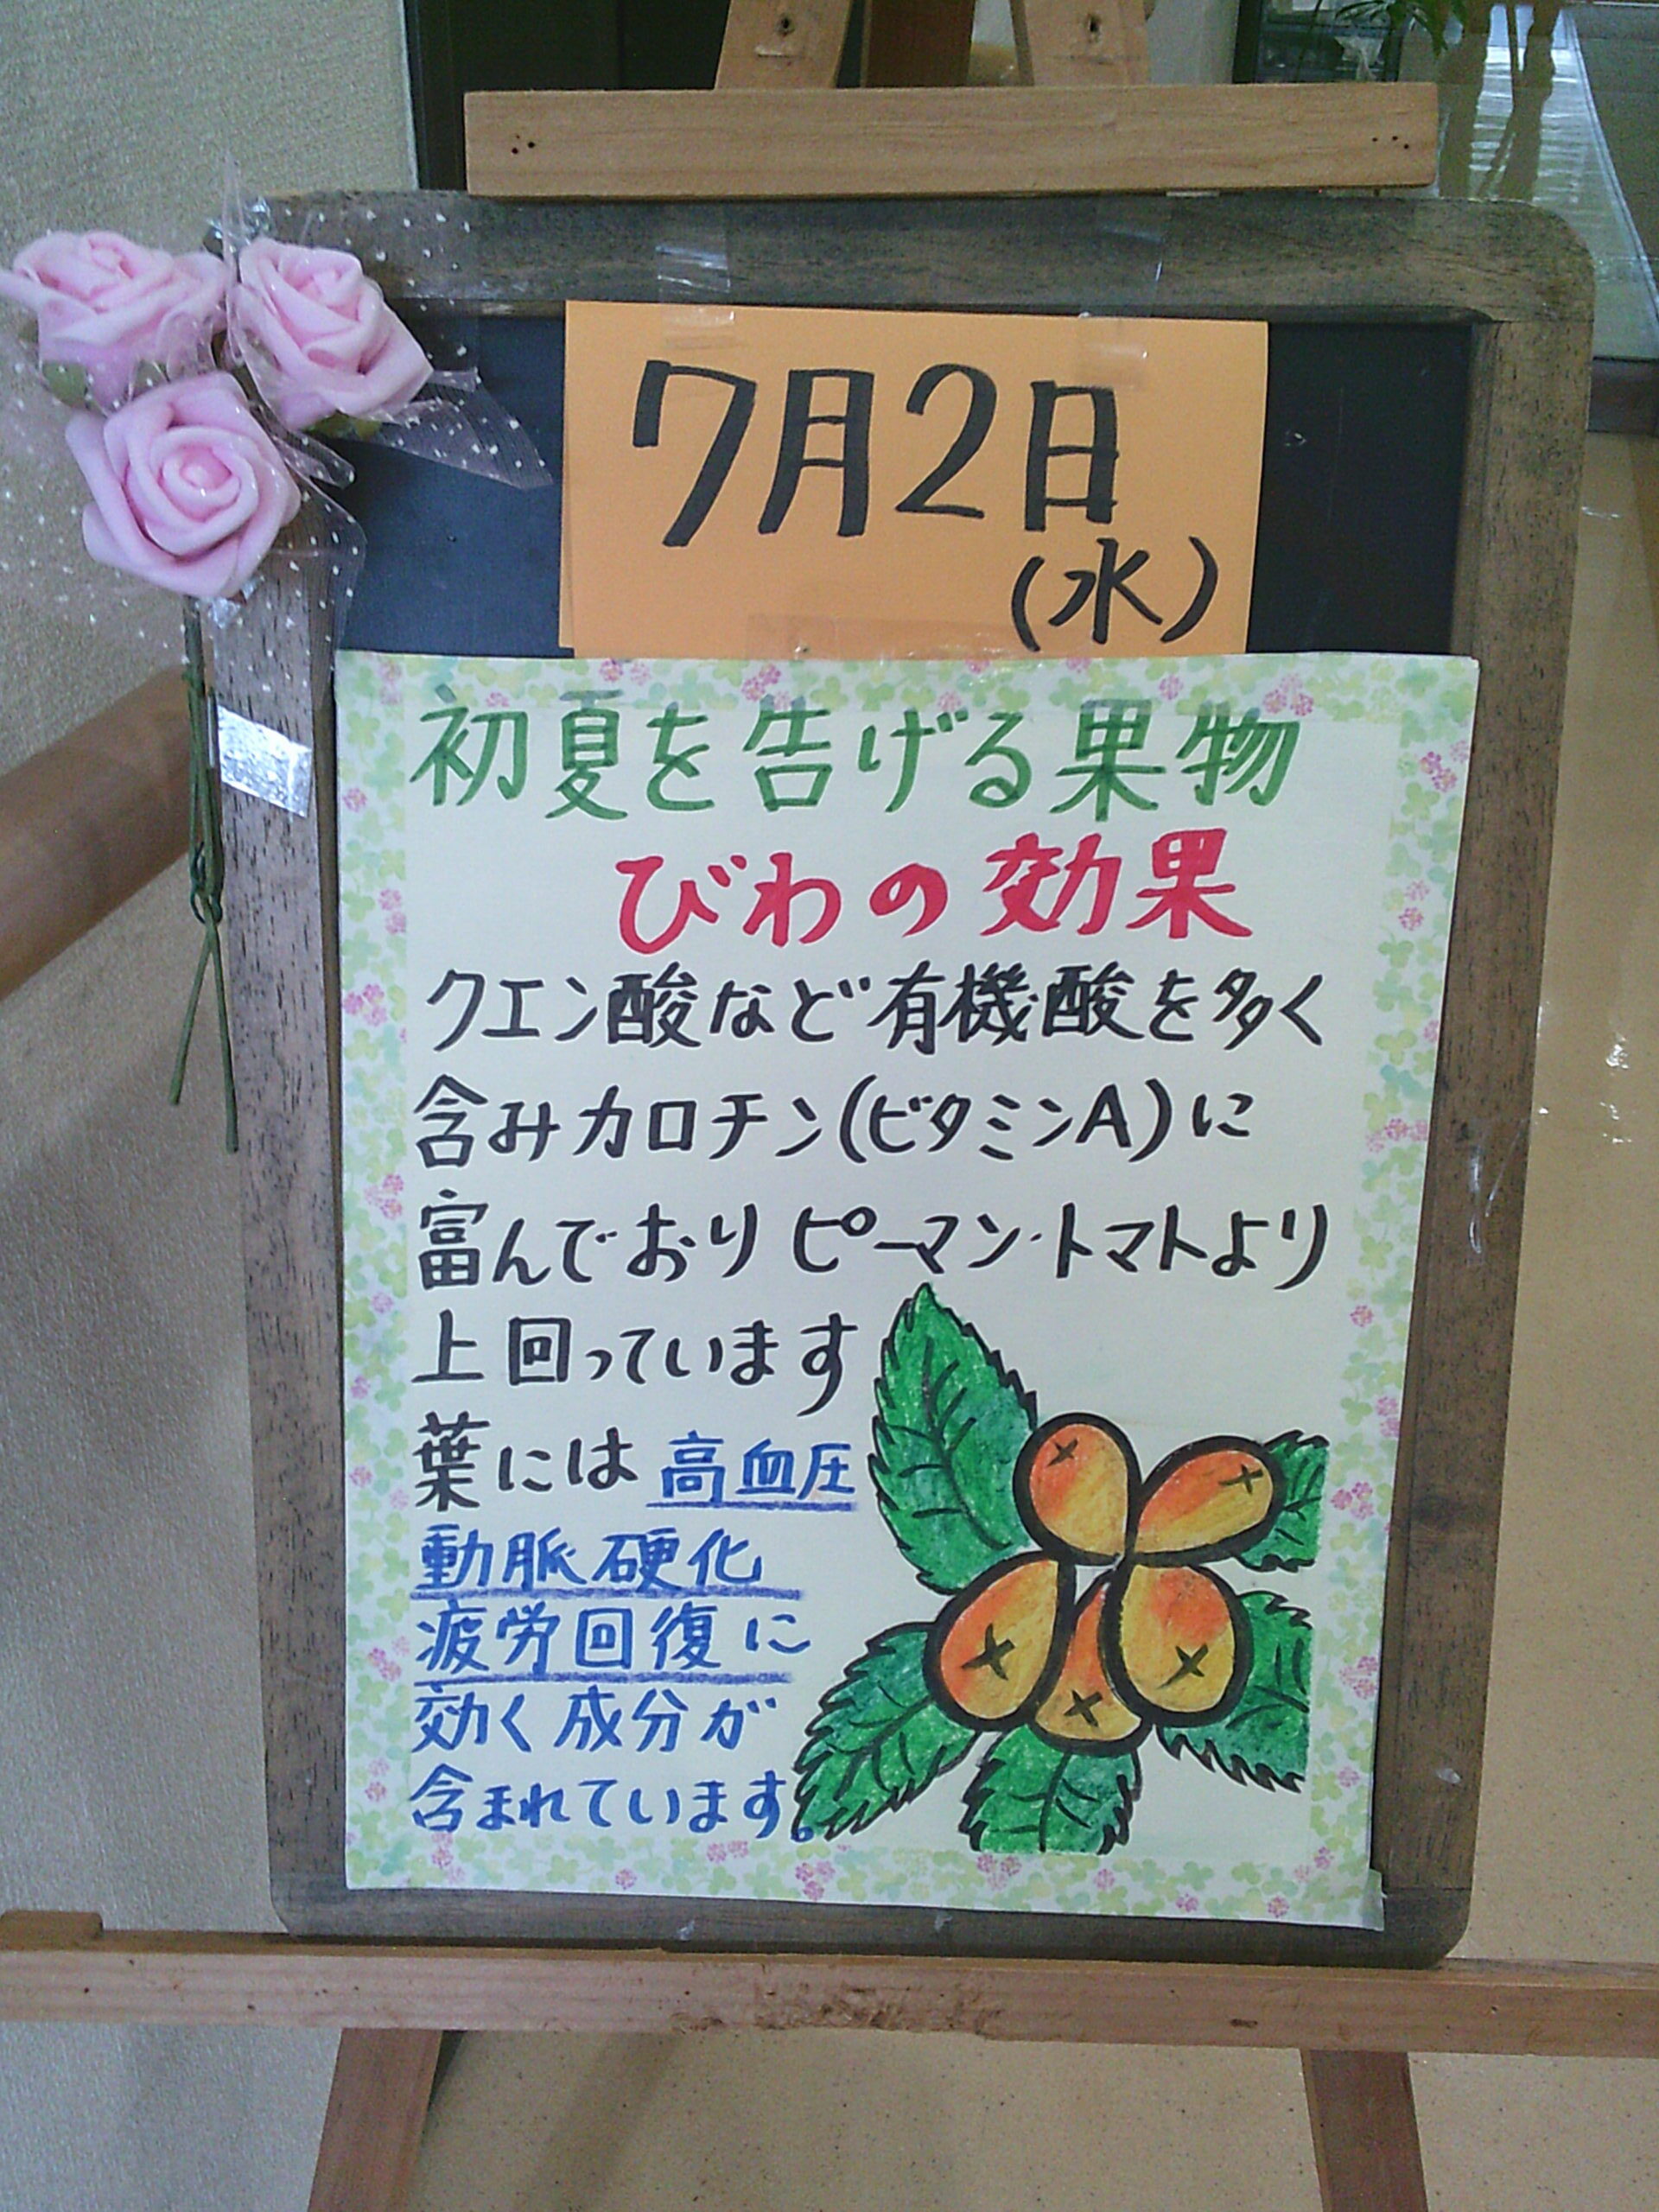 7月2日
(水)
初夏を告げる果物
びわの効果
クエン酸など有機酸を多く
含みカロチン(ビタミンA)に
富んでおりピーマン・トマトより
上回っています
葉には高血圧
動脈硬化
疲労回復に
効く成分が
含まれています。